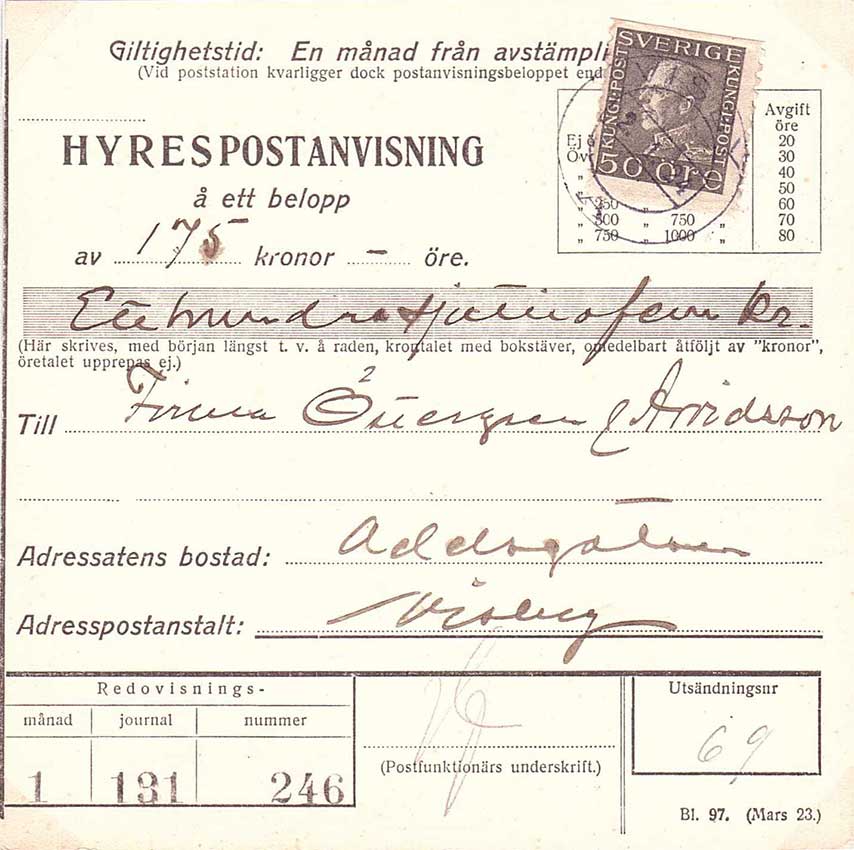 Giltighetstid: En månad från avstämpli
(Vid poststation kvarligger dock postanvisningsbeloppet end
SVERIGE
KUNGL: POST
KUNGL: POST
50 öre
HYRESPOSTANVISNING
å ett belopp
av 175 kronor — öre.
Avgift
öre
Ej ö 20
Öv 30
„ 40
„ 50
„ 250 „ 60
„ 500 „ 750 „ 70
„ 750 „ 1000 „ 80
Etthundrasjuttiofem kr.
(Här skrives, med början längst t. v. å raden, krontalet med bokstäver, omedelbart åtföljt av "kronor",
öretalet upprepas ej.)
Till Firma & Arvidsson
Adressatens bostad:
Adresspostanstalt: Visby
Redovisnings-
månad journal nummer
1 131 246
(Postfunktionärs underskrift.)
Utsändningsnr
69
Bl. 97. (Mars 23.)